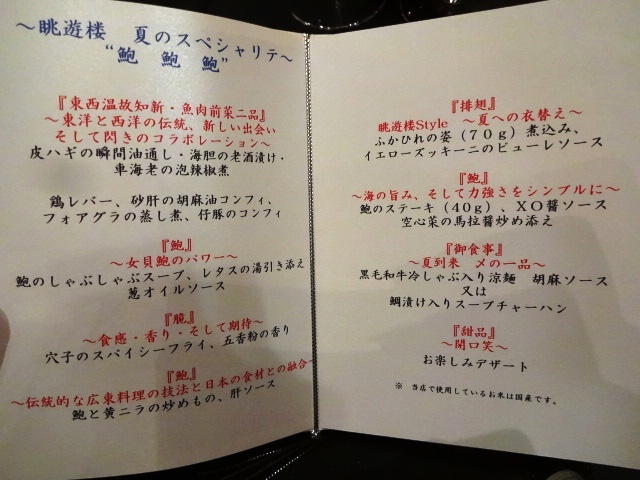 ～眺遊楼 夏のスペシャリテ～
“鮑 鮑 鮑”
『東西温故知新・魚肉前菜二品』
～東洋と西洋の伝統、新しい出会い
そして閃きのコラボレーション～
皮ハギの瞬間油通し・海胆の老酒漬け・
車海老の泡辣椒煮
鶏レバー、砂肝の胡麻油コンフィ、
フォアグラの蒸し煮、仔豚のコンフィ
『鮑』
～女貝鮑のパワー～
鮑のしゃぶしゃぶスープ、レタスの湯引き添え
葱オイルソース
『脆』
～食感・香り・そして期待～
穴子のスパイシーフライ、五香粉の香り
『鮑』
～伝統的な広東料理の技法と日本の食材との融合～
鮑と黄ニラの炒めもの、肝ソース
『排翅』
眺遊楼Style ～夏への衣替え～
ふかひれの姿（70ｇ）煮込み、
イエローズッキーニのピューレソース
『鮑』
～海の旨み、そして力強さをシンプルに～
鮑のステーキ（40ｇ）、XO醤ソース
空心菜の馬拉醤炒め添え
『御食事』
～夏到来 〆の一品～
黒毛和牛冷しゃぶ入り涼麺 胡麻ソース
又は
鯛漬け入りスープチャーハン
『甜品』
～開口笑～
お楽しみデザート
※ 当店で使用しているお米は国産です。